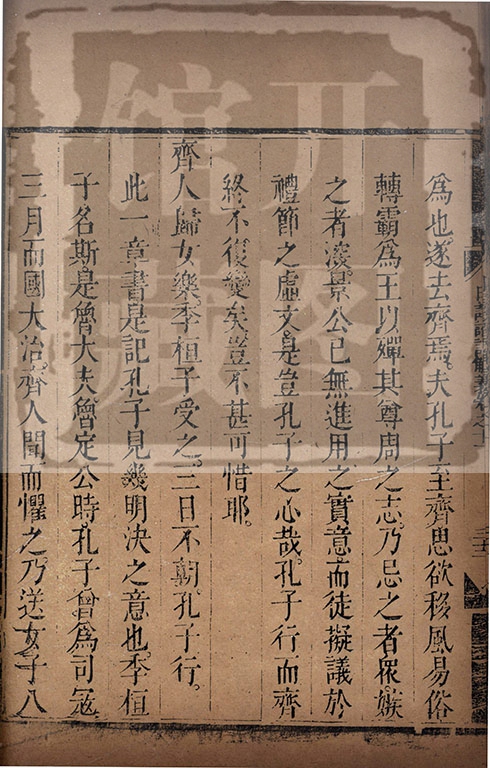 為也。遂去齊焉。夫孔子至齊思欲移風易俗
轉霸為王以殫其尊周之志。乃忌之者眾。嫉
之者深。景公已無進用之實意。而徒擬議於
禮節之虛文是豈孔子之心哉。孔子行而齊
終不復變矣豈不甚可惜耶。
齊人歸女樂。季桓子受之。三日不朝。孔子行。
此一章書是記孔子見幾明決之意也。季桓
子名斯。是魯大夫。魯定公時孔子曾為司寇
三月而國大治。齊人聞而懼之。乃送女子八